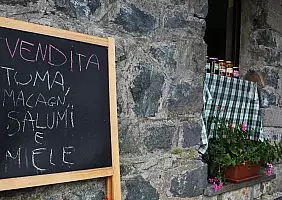 VENDITA
TOMA,
MACAGN,
SALUMI
E
MIELE